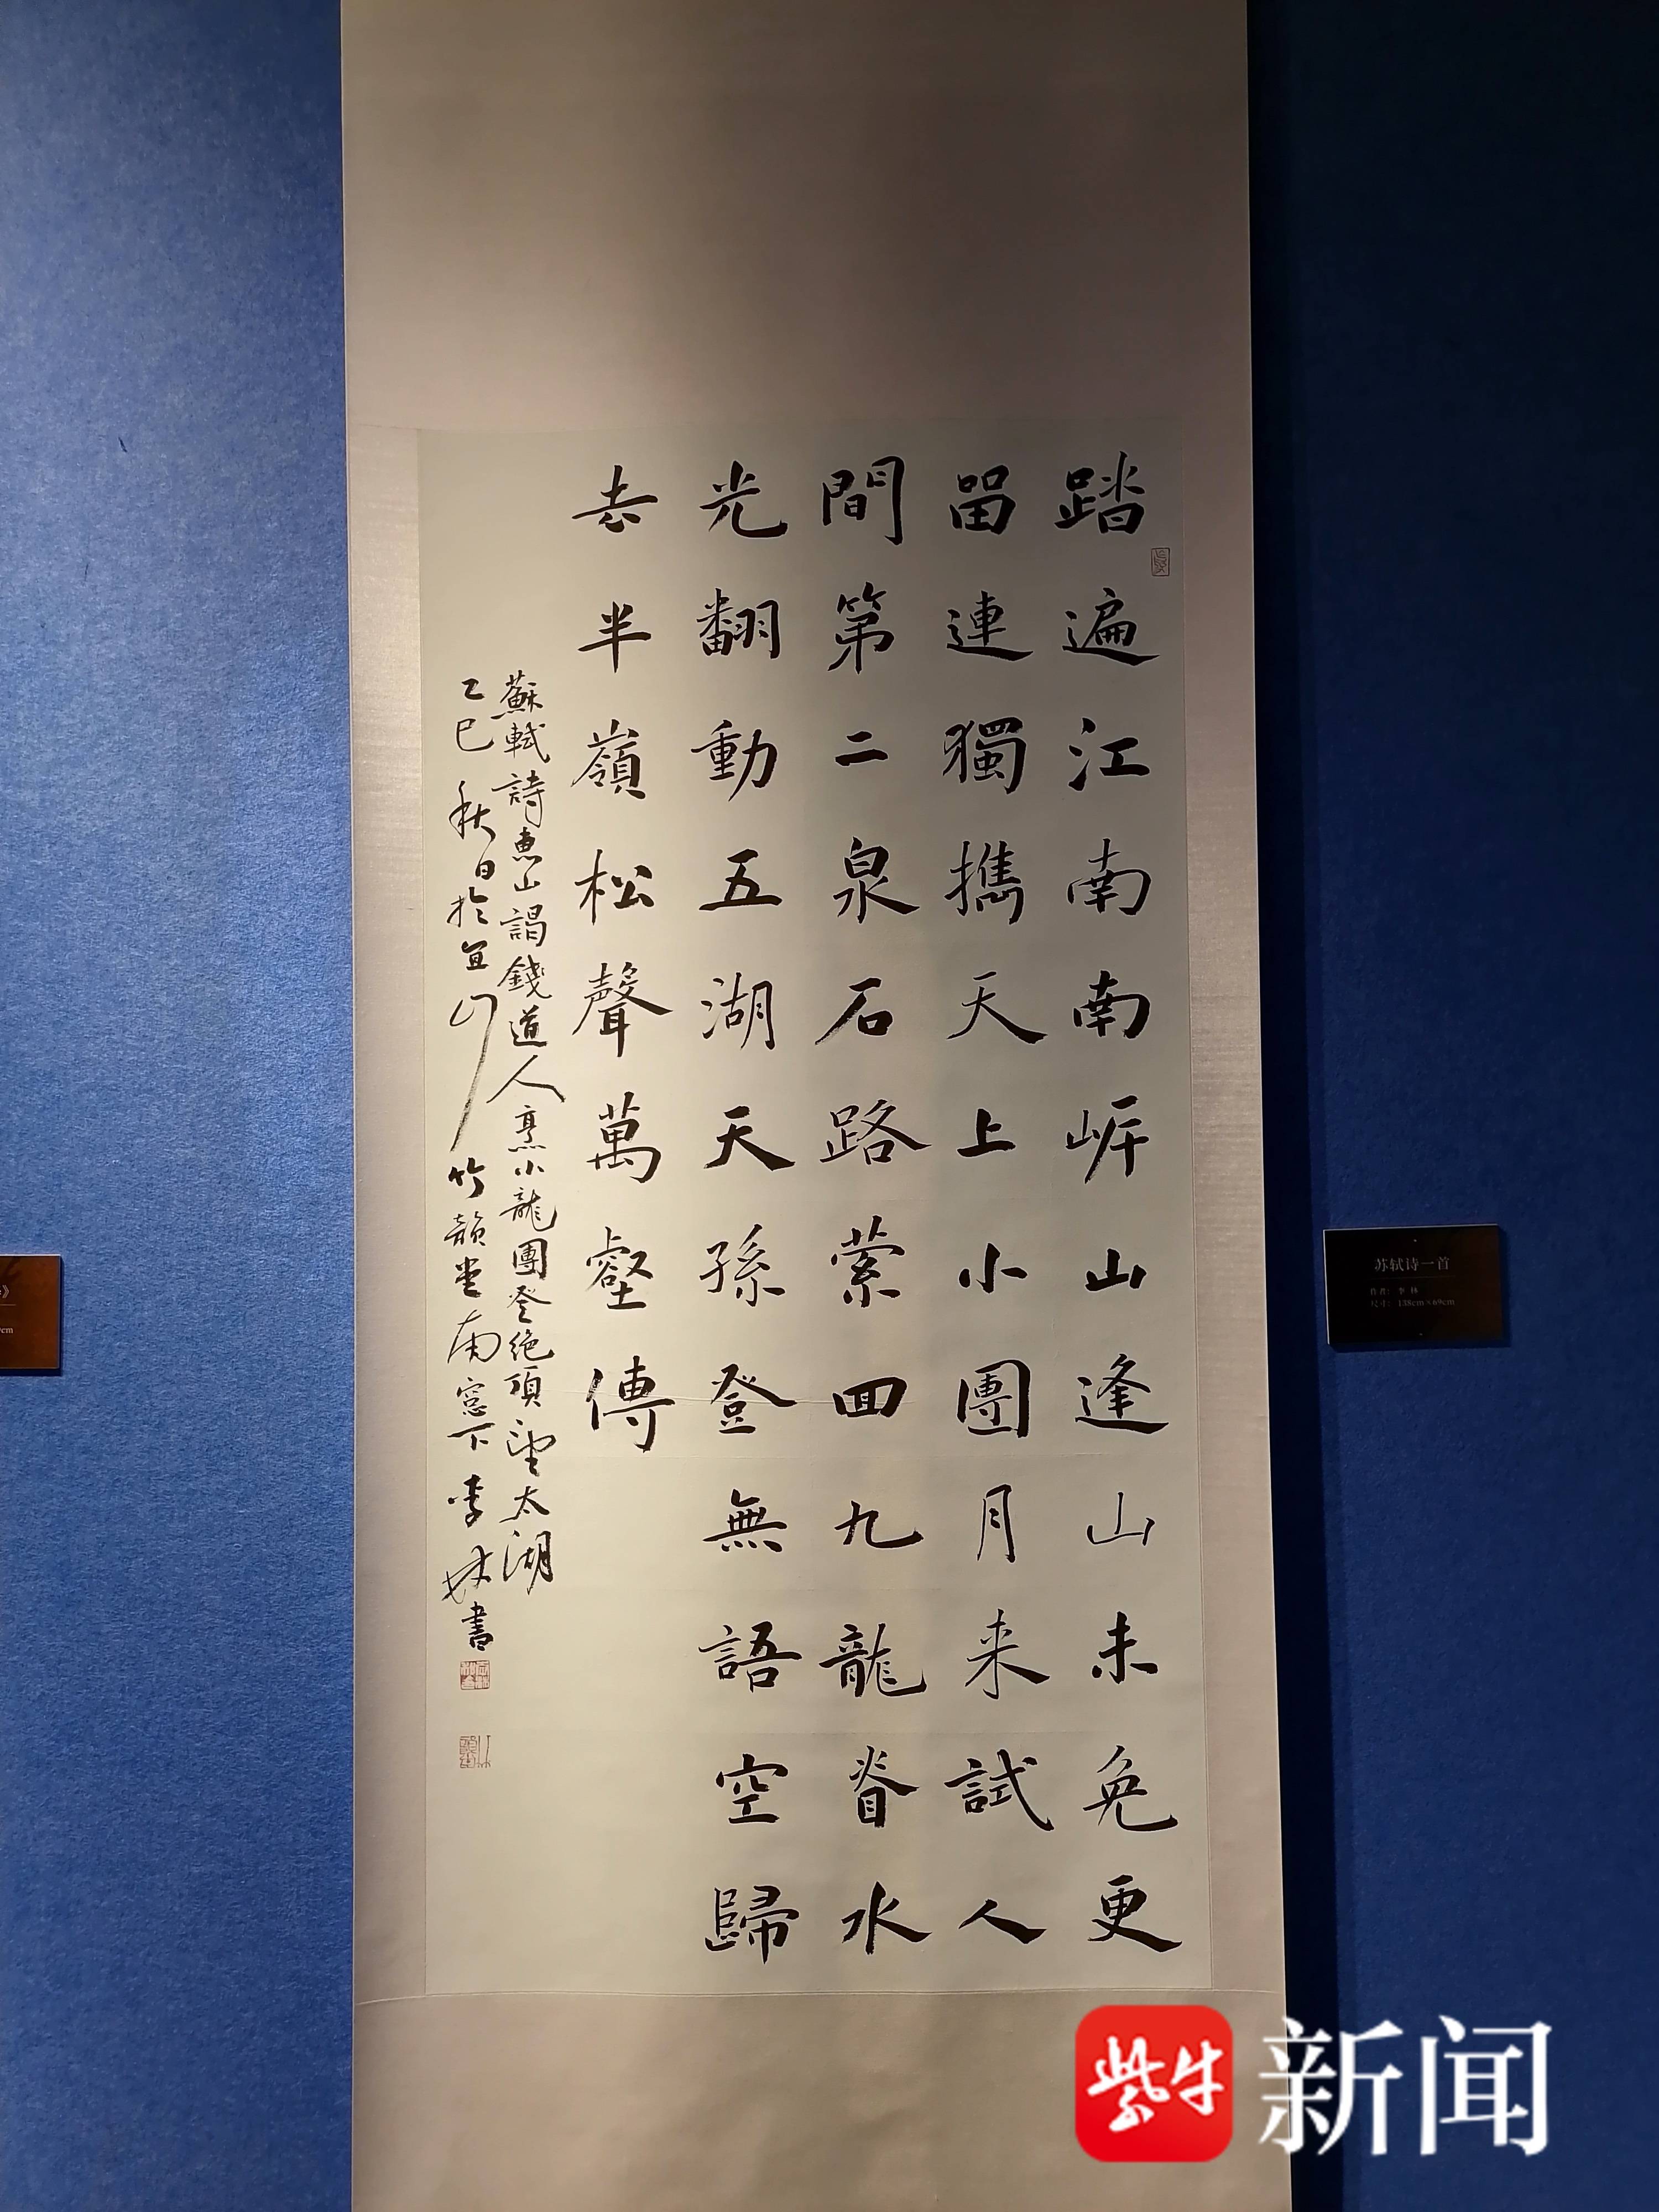 踏遍江南南岸山逢山未免更
留連獨攜天上小團月来試人
間第二泉石路縈回九龍脊水
光翻動五湖天孫登無語空歸
去半嶺松聲萬壑傳
蘇軾詩惠山謁錢道人烹小龍團登絕頂望太湖
乙巳秋日於宜竹韻堂南窓下李林書
苏轼诗一首
作者：李 林
尺寸：138cm×69cm
cm
紫牛新闻